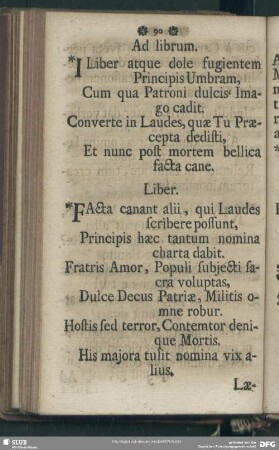 ❁ 90 ❁
Ad librum.
*I Liber atque dole fugientem
Principis Umbram,
Cum qua Patroni dulcis Ima-
go cadit.
Converte in Laudes, quæ Tu Præ-
cepta dedisti,
Et nunc post mortem bellica
facta cane.
Liber.
*FActa canant alii, qui Laudes
scribere possunt,
Principis hæc tantum nomina
charta dabit.
Fratris Amor, Populi subjecti sa-
cra voluptas,
Dulce Decus Patriæ, Militis o-
mne robur.
Hostis sed terror, Contemtor deni-
que Mortis.
His majora tulit nomina vix a-
lius,
Læ-
SLUB
DFG